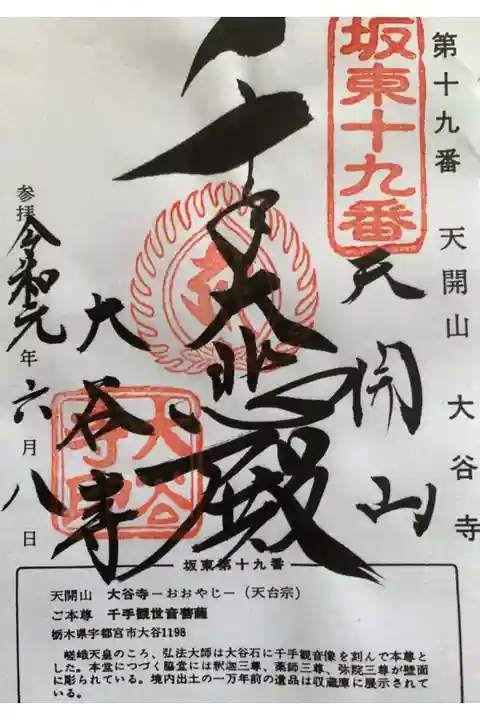 第十九番 天開山 大谷寺
坂東十九番
天開山
千手大悲殿
大谷寺
大谷
寺印
参拝 令和元年六月八日
坂東第十九番
天開山 大谷寺－おおやじ－(天台宗)
ご本尊 千手観世音菩薩
栃木県宇都宮市大谷1198
嵯峨天皇のころ、弘法大師は大谷石に千手観音像を刻んで本尊と
した。本堂につづく脇堂には釈迦三尊、薬師三尊、弥陀三尊が壁面
に彫られている。境内出土の一万年前の遺品は収蔵庫に展示されて
いる。